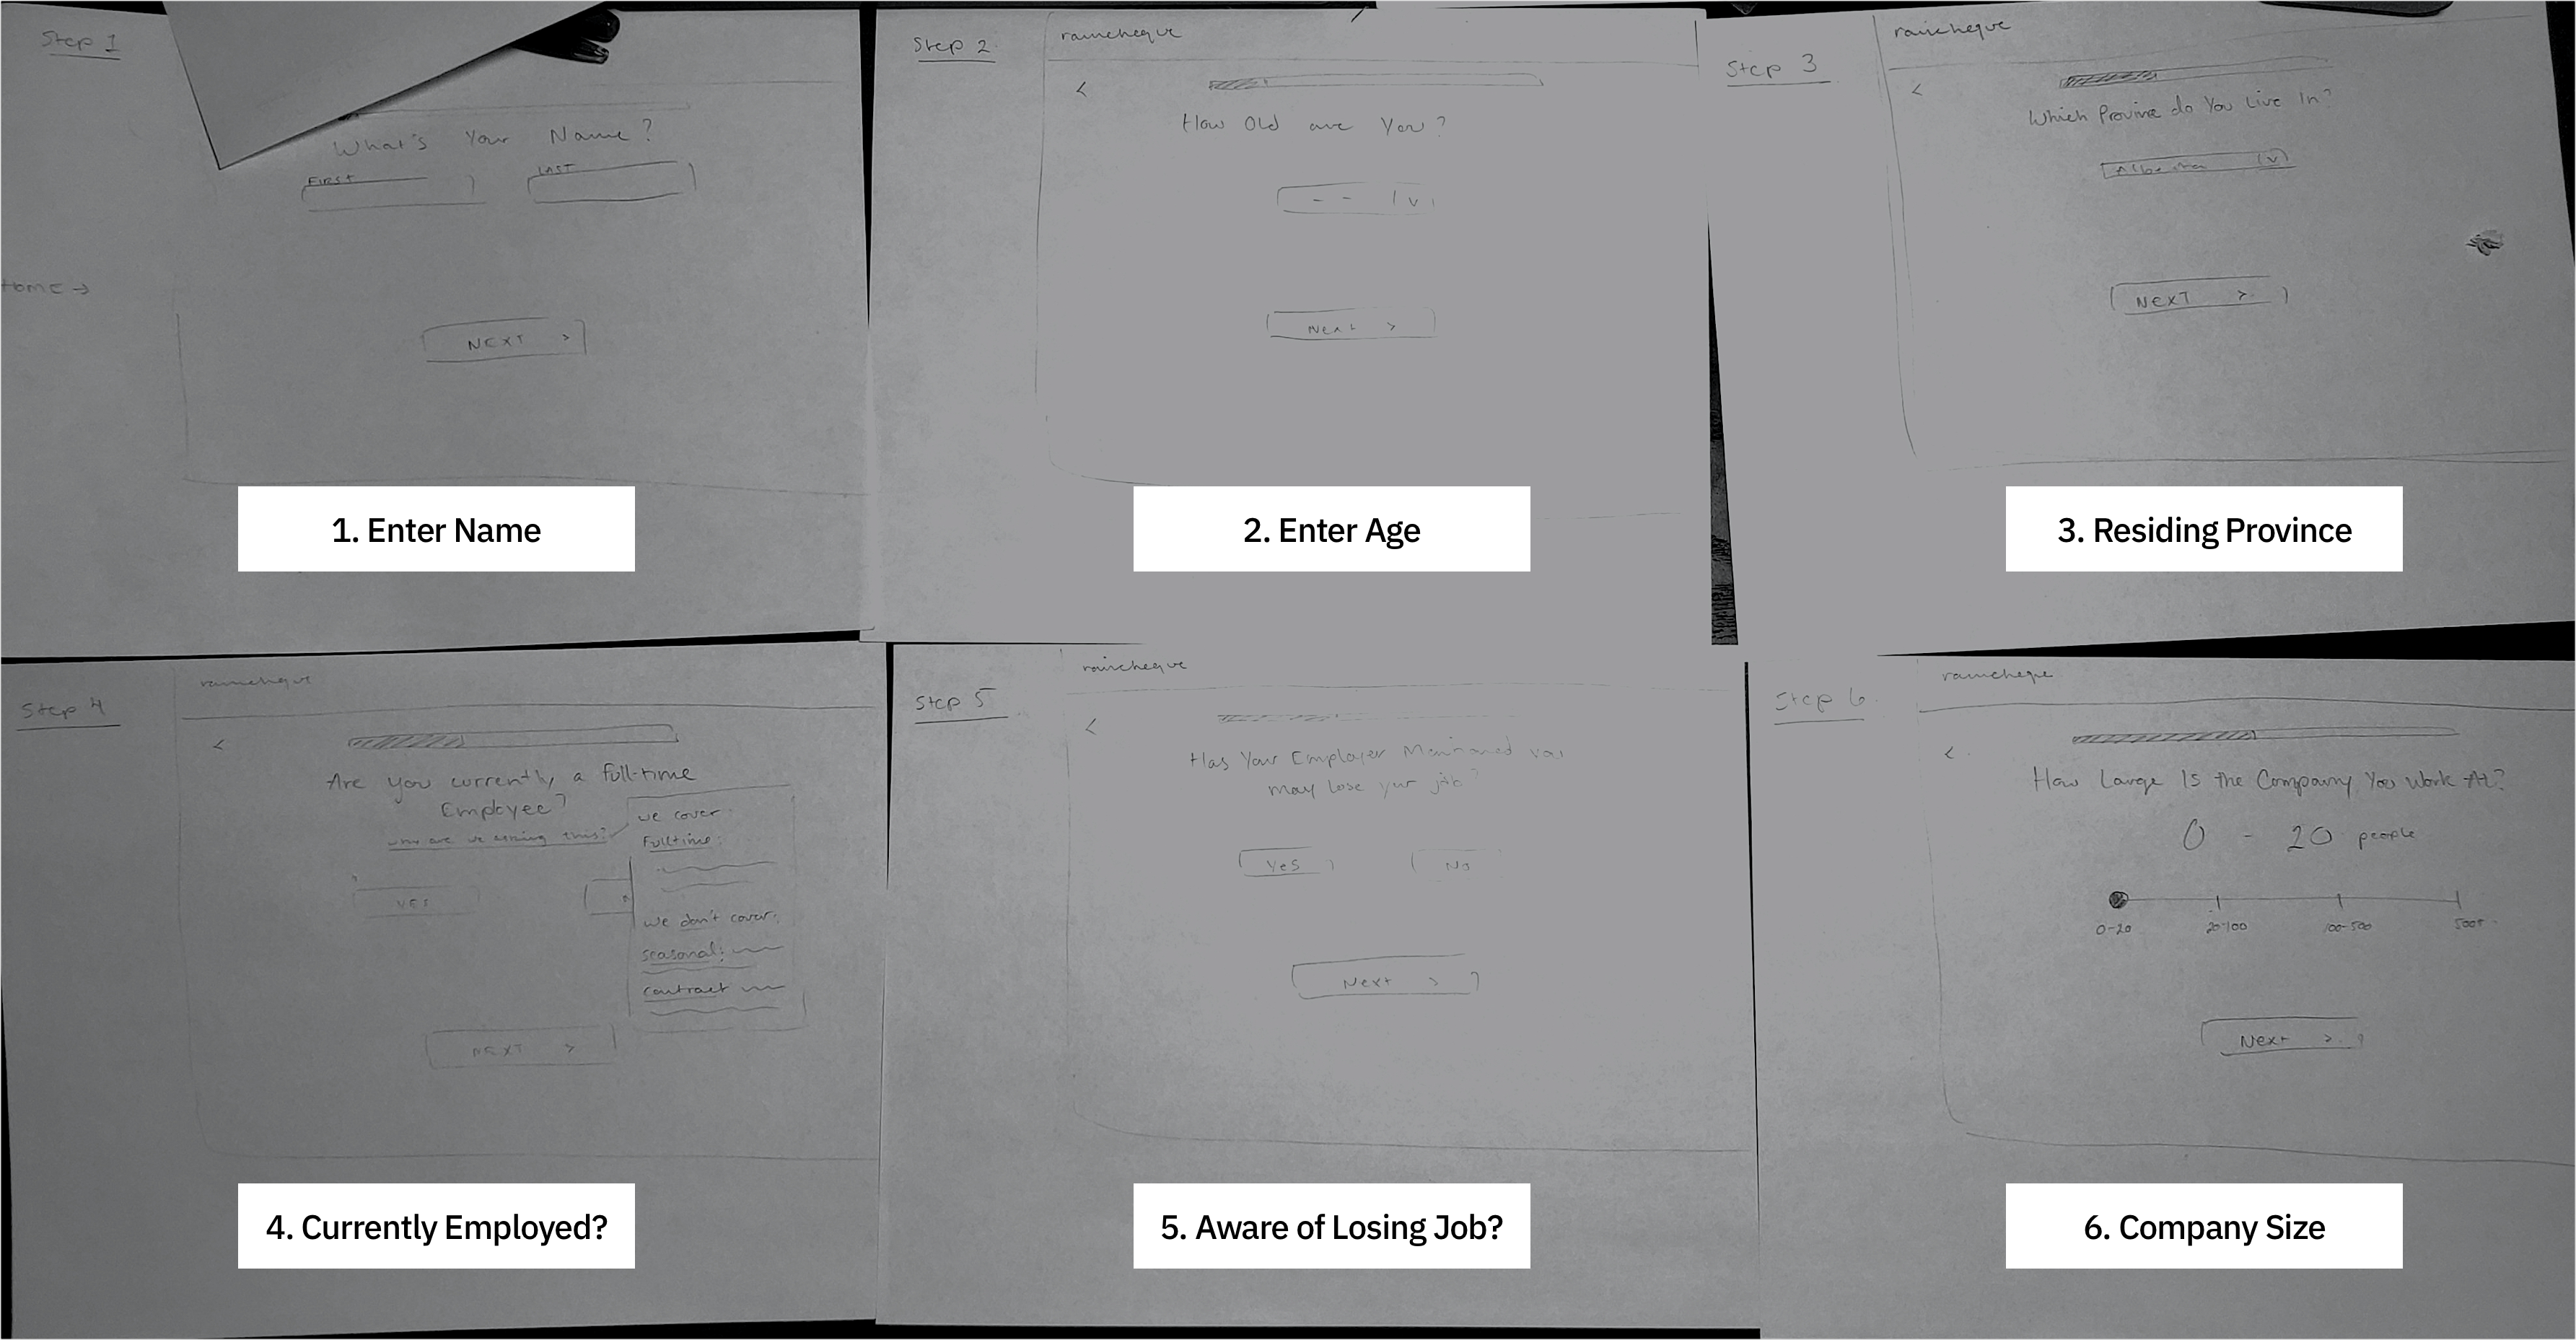 Step 1
What's Your Name?
FIRST LAST
Home →
NEXT >
1. Enter Name
Step 2
raincheque
<
How Old are You?
- - v
Next >
2. Enter Age
Step 3
raincheque
<
Which Province do You Live In?
Alberta v
NEXT >
3. Residing Province
Step 4
raincheque
<
Are you currently a full-time
Employee?
why are we asking this?
we cover:
Fulltime:
we don't cover:
seasonal:
contract
YES
NEXT >
4. Currently Employed?
Step 5
raincheque
<
Has Your Employer Mentioned You
may lose your job?
Yes No
Next >
5. Aware of Losing Job?
Step 6
raincheque
<
How Large Is the Company You Work At?
0 - 20 people
0-20 20-100 100-500 500+
Next >
6. Company Size